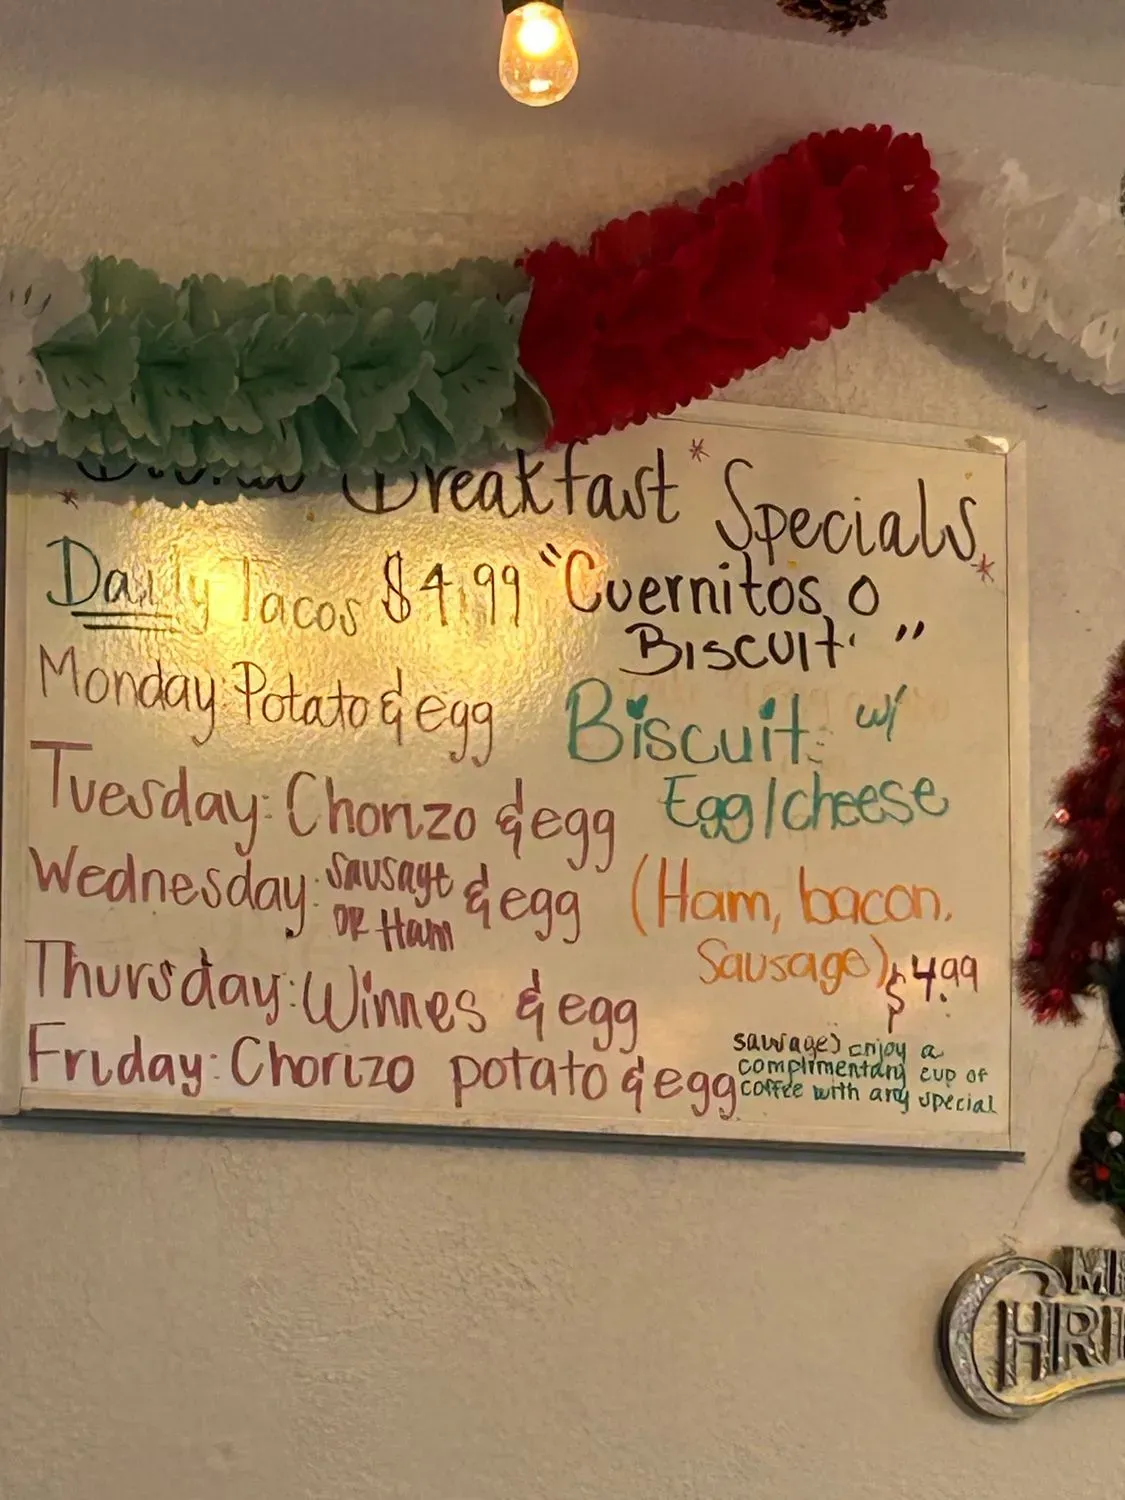 Breakfast Specials
Daily Tacos $4.99
Monday: Potato & egg
Tuesday: Chorizo & egg
Wednesday: Sausage or Ham & egg
Thursday: Winnes & egg
Friday: Chorizo potato & egg
"Cuernitos o
Biscuit "
Biscuit w/
Egg/cheese
(Ham, bacon,
Sausage) $4.99
sausage) enjoy a
complimentary cup of
coffee with any special